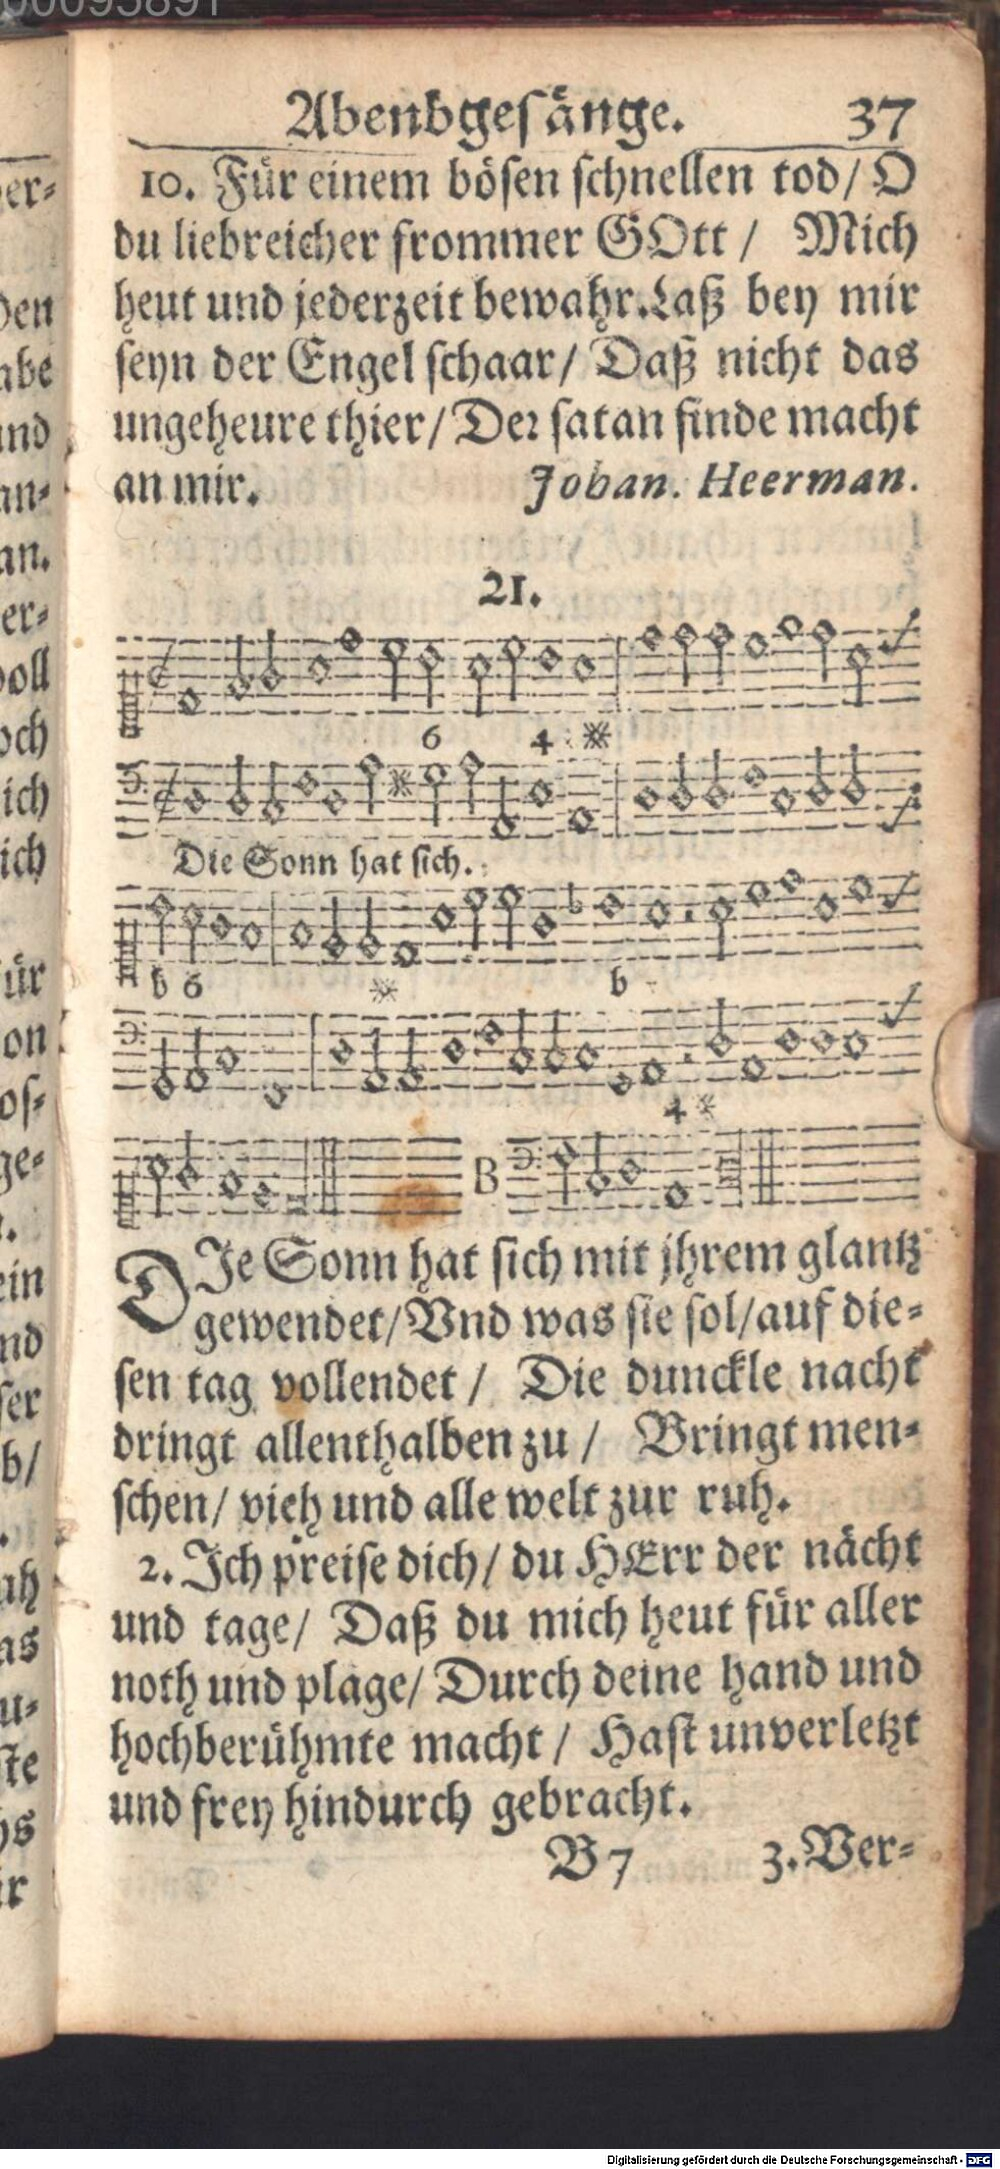 Abendgesänge. 37
10. Für einem bösen schnellen tod/ O
du liebreicher frommer GOtt / Mich
heut und jederzeit bewahr. Laß bey mir
seyn der Engel schaar/ Daß nicht das
ungeheure thier/ Der satan finde macht
an mir. Johan. Heerman.
21.
6 4
Die Sonn hat sich.
b 6 b
4
B
DJe Sonn hat sich mit jhrem glantz
gewendet/ Vnd was sie sol/ auf die-
sen tag vollendet / Die dunckle nacht
dringt allenthalben zu / Bringt men-
schen/ vieh und alle welt zur ruh.
2. Jch preise dich/ du HErr der nächt
und tage/ Daß du mich heut für aller
noth und plage/ Durch deine hand und
hochberühmte macht / Hast unverletzt
und frey hindurch gebracht.
B 7 3. Ver-
Digitalisierung gefördert durch die Deutsche Forschungsgemeinschaft - DFG